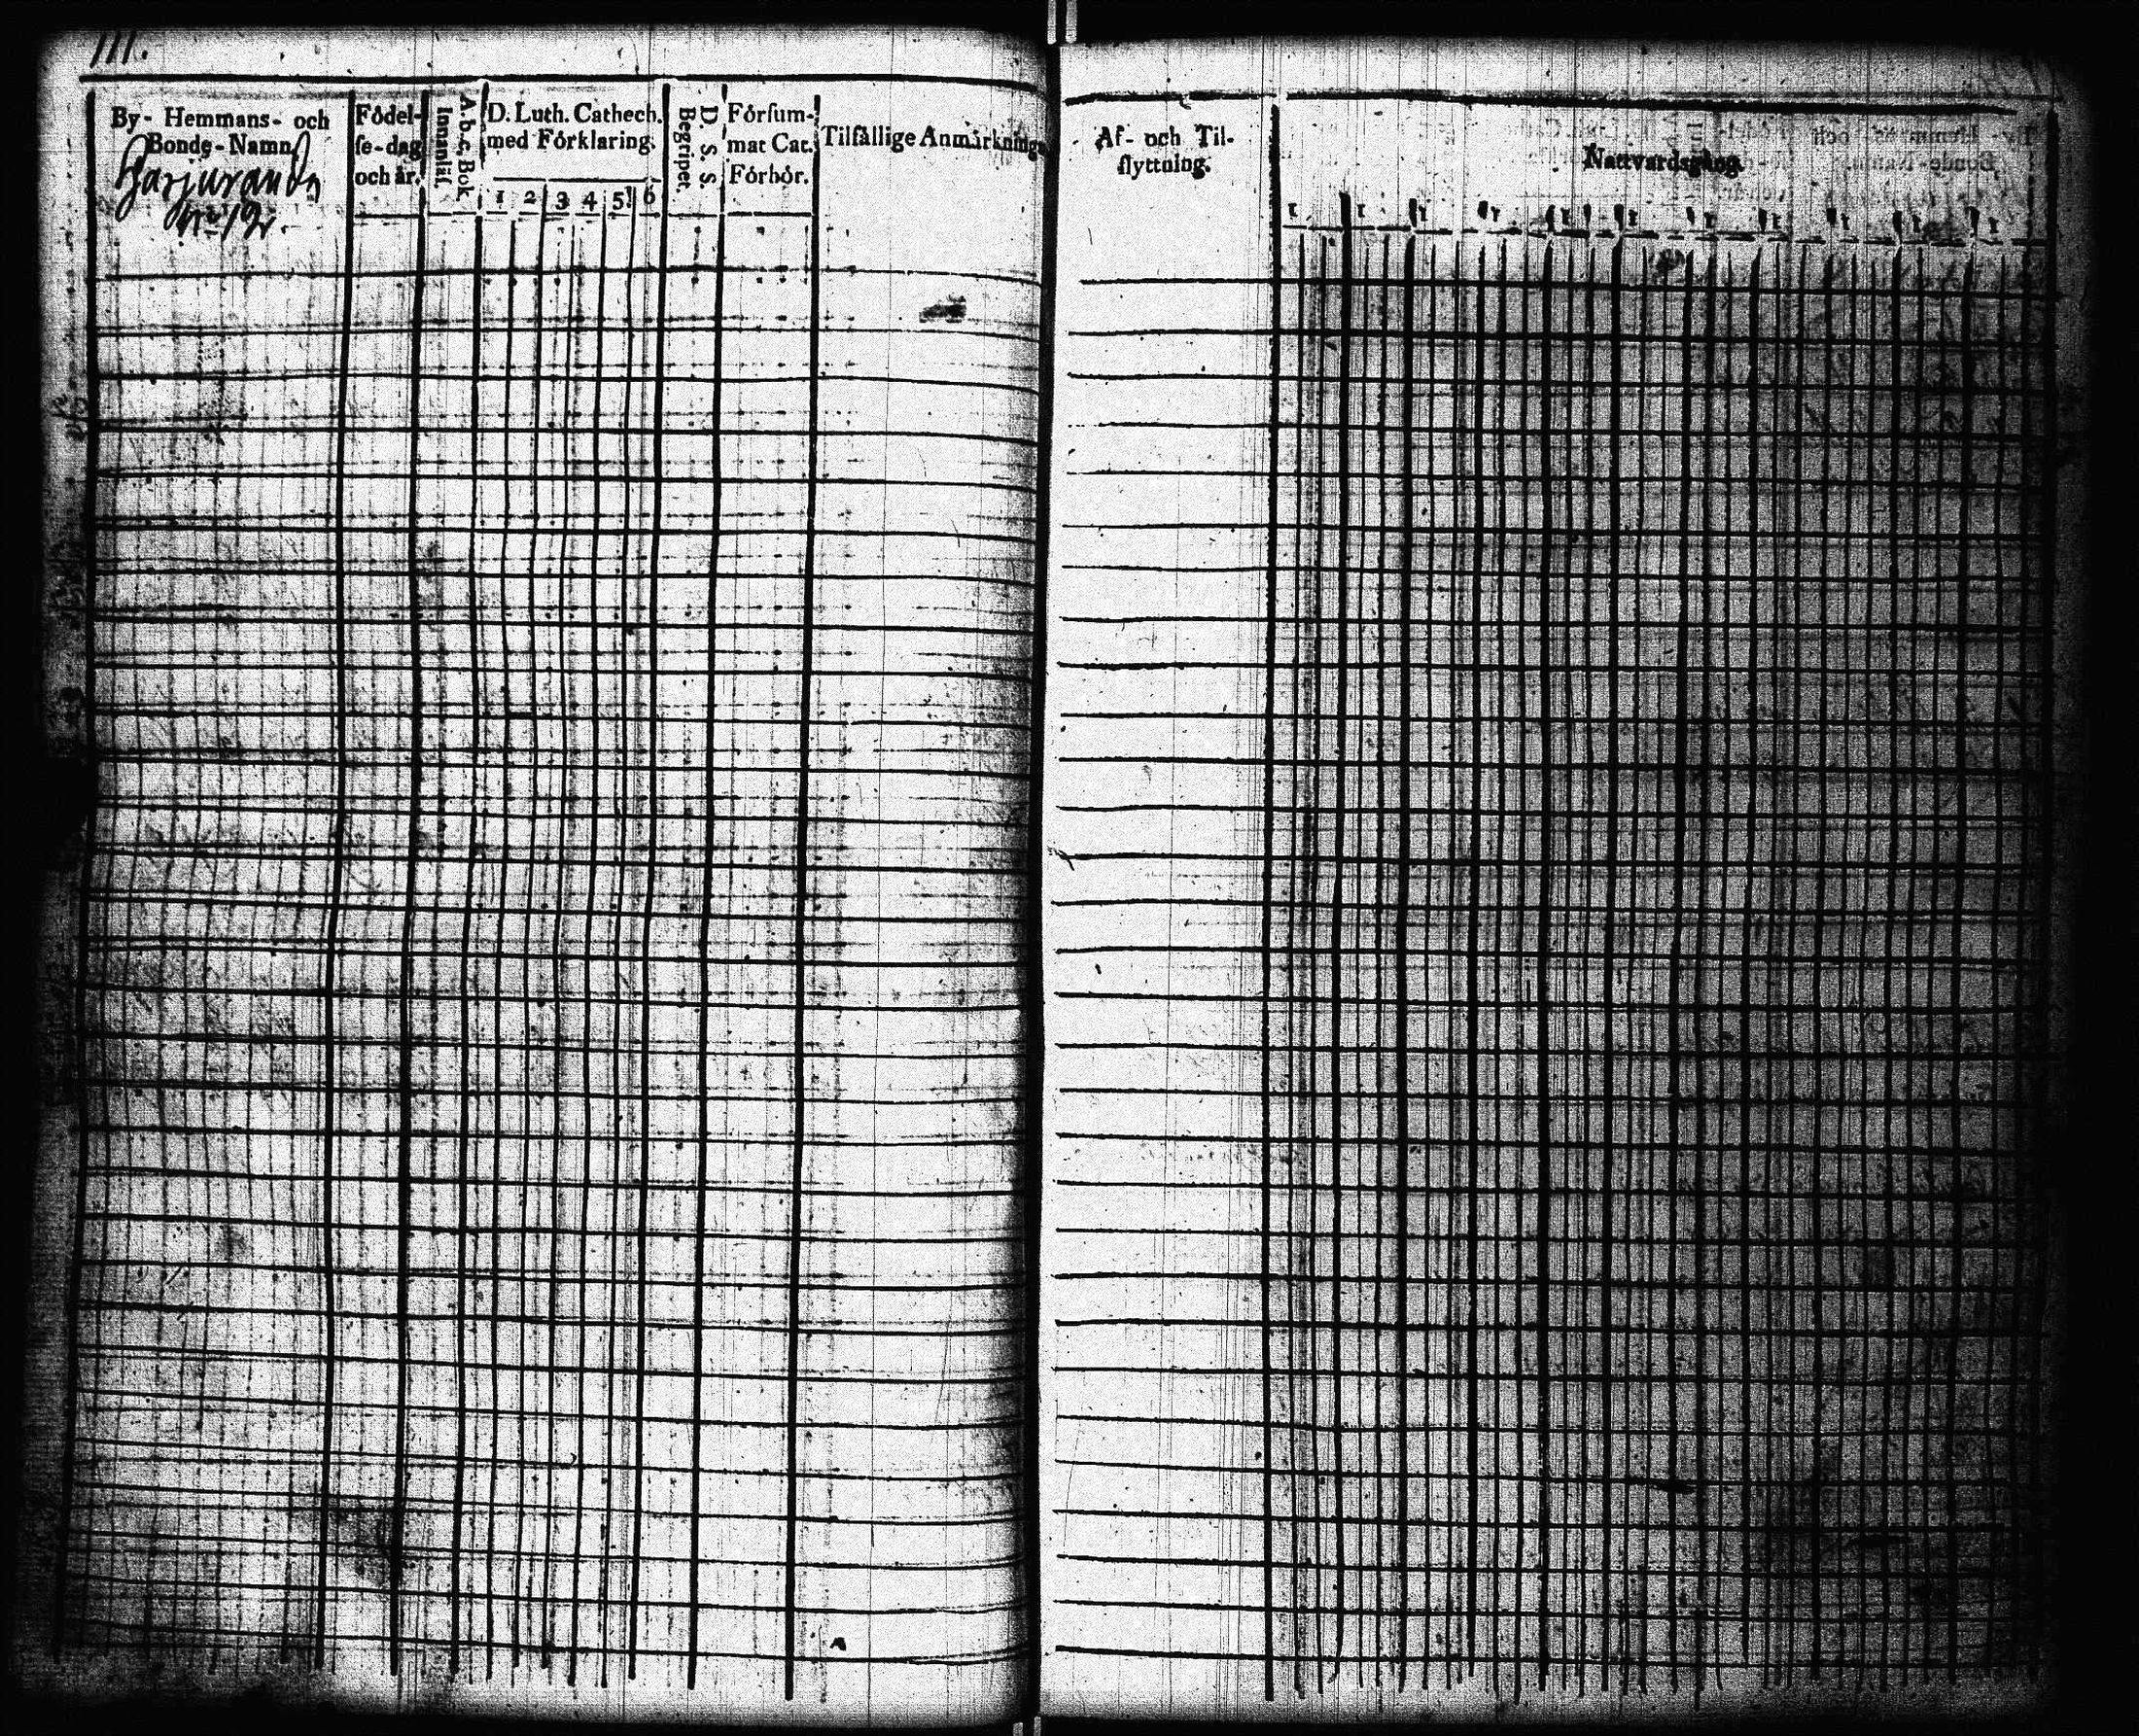 111.
By- Hemmans- och
Bonde-Namn.
Harjuranda
No 12.
Födel-
se-dag
och år.
A.b.c. Bok
Innanläs.
D. Luth. Cathech.
med Förklaring.
1 2 3 4 5 6
D. S. S.
Begripet.
Försum-
mat Cat.
Förhör.
Tilfällige Anmärkningar
Af- och Til-
flyttning.
Nattvardsgång.